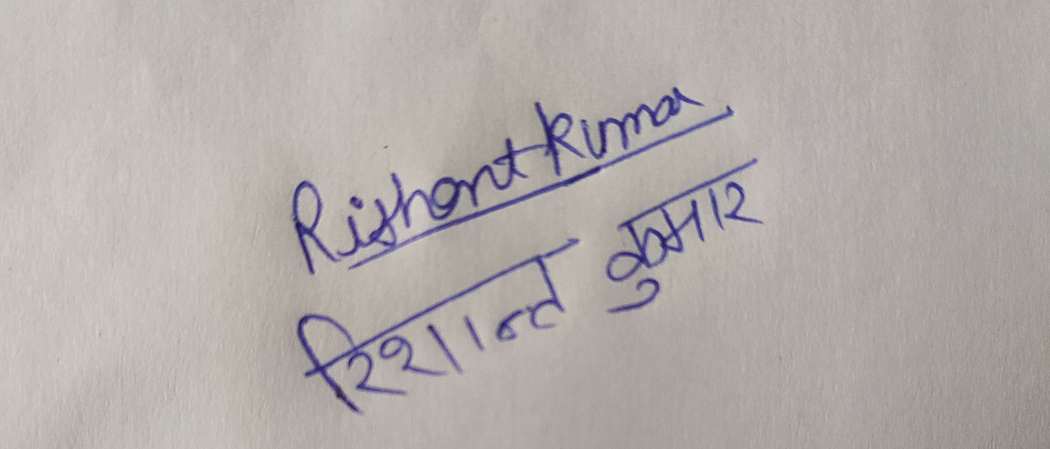 Rishant Kumar
रिशान्त कुमार